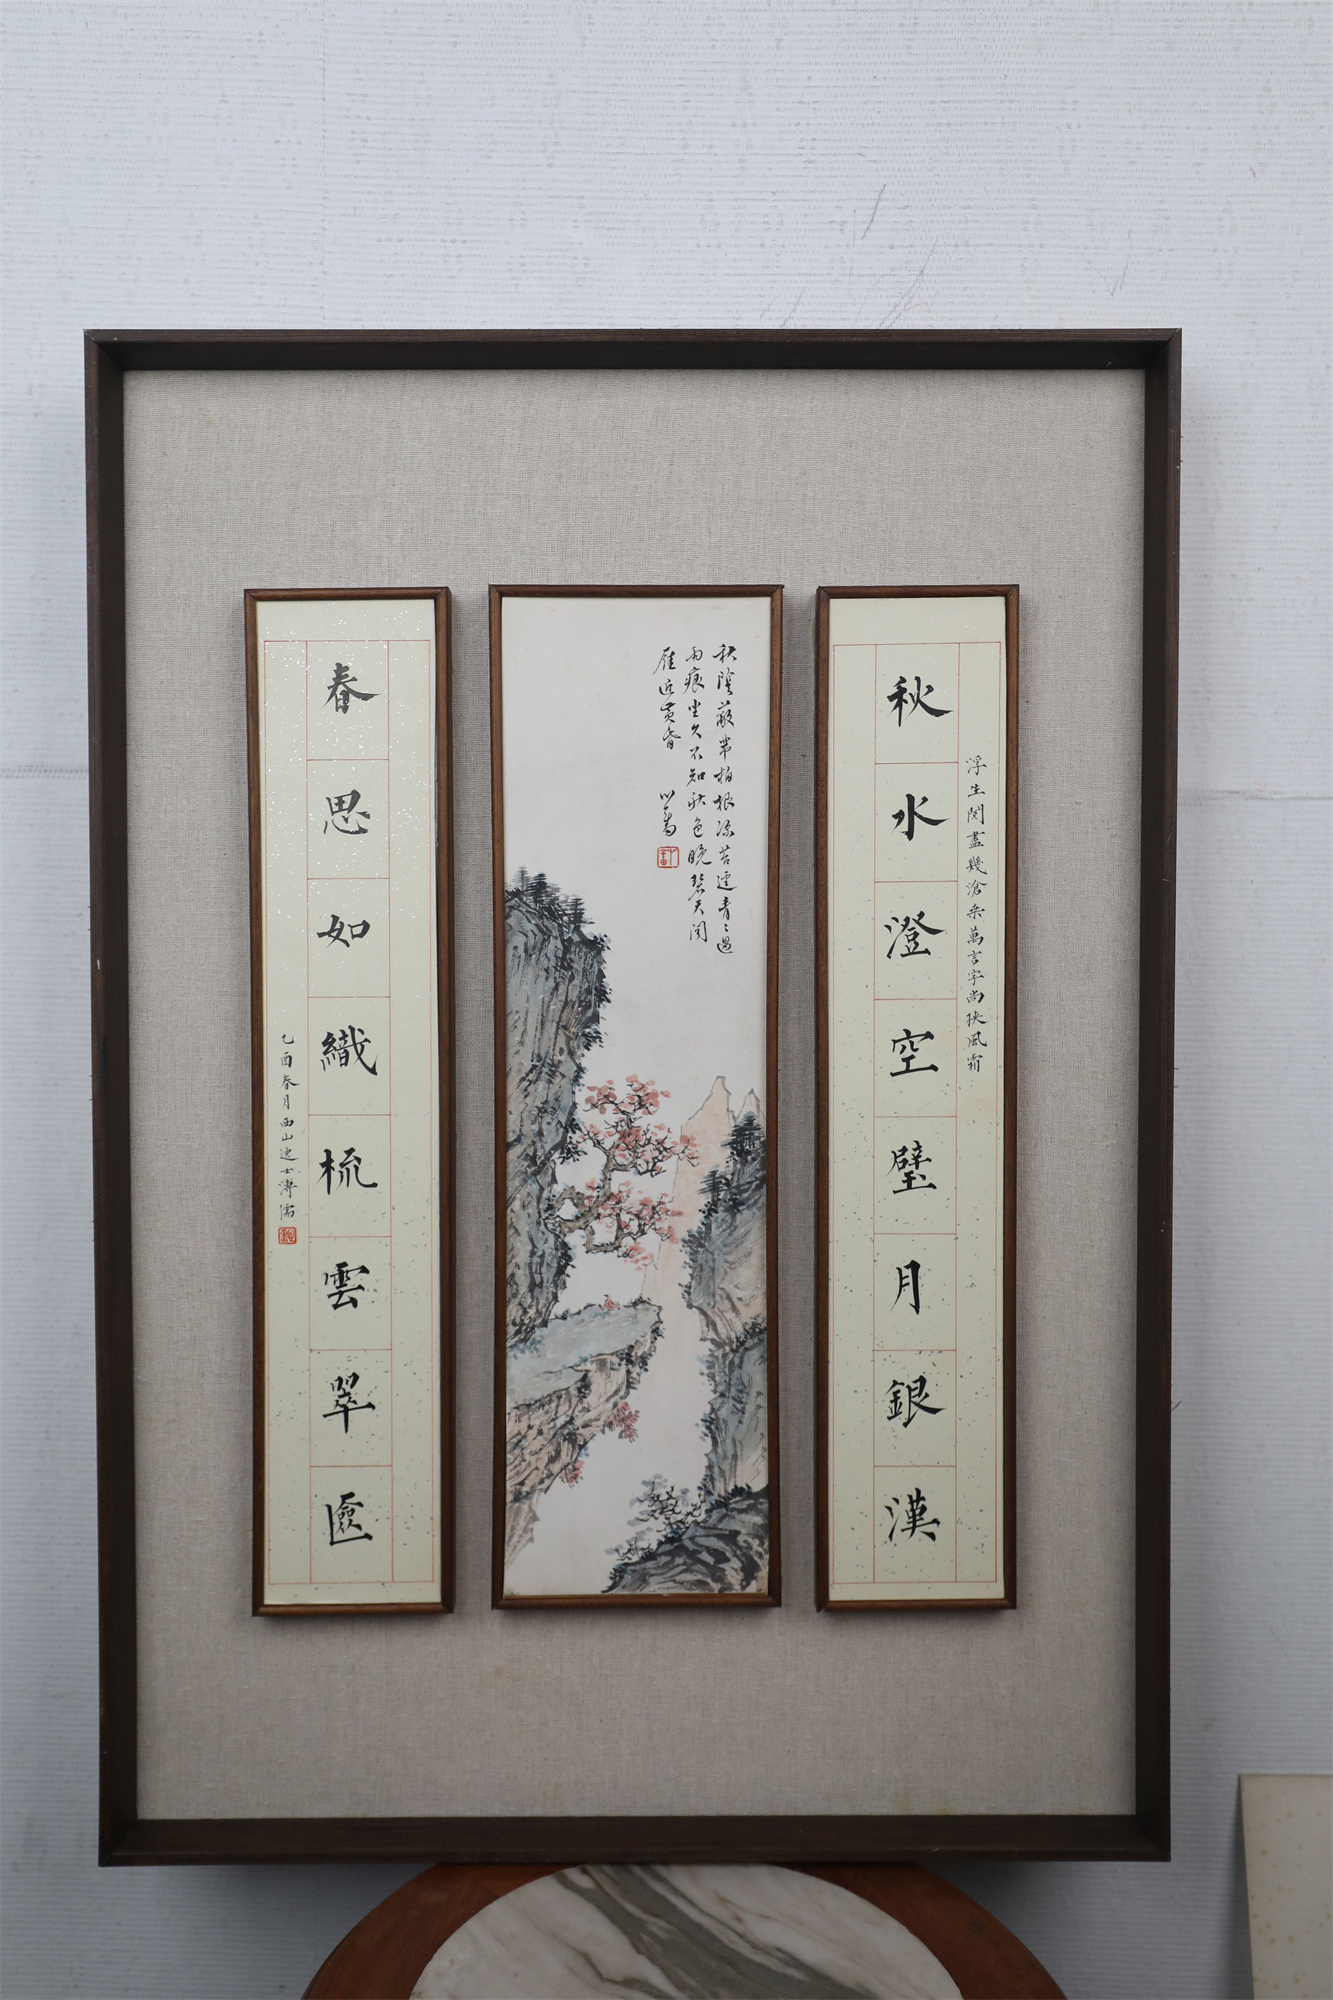 浮生閱盡幾滄桑萬言字尚挾風霜
秋水澄空壁月銀漢
秋陰蔽芾柏根涼苔逕青〻過
雨痕坐久不知秋色晚碧天閑
雁近黃昏 心畬
春思如織梳雲翠匳
乙酉春月西山逸士溥濡